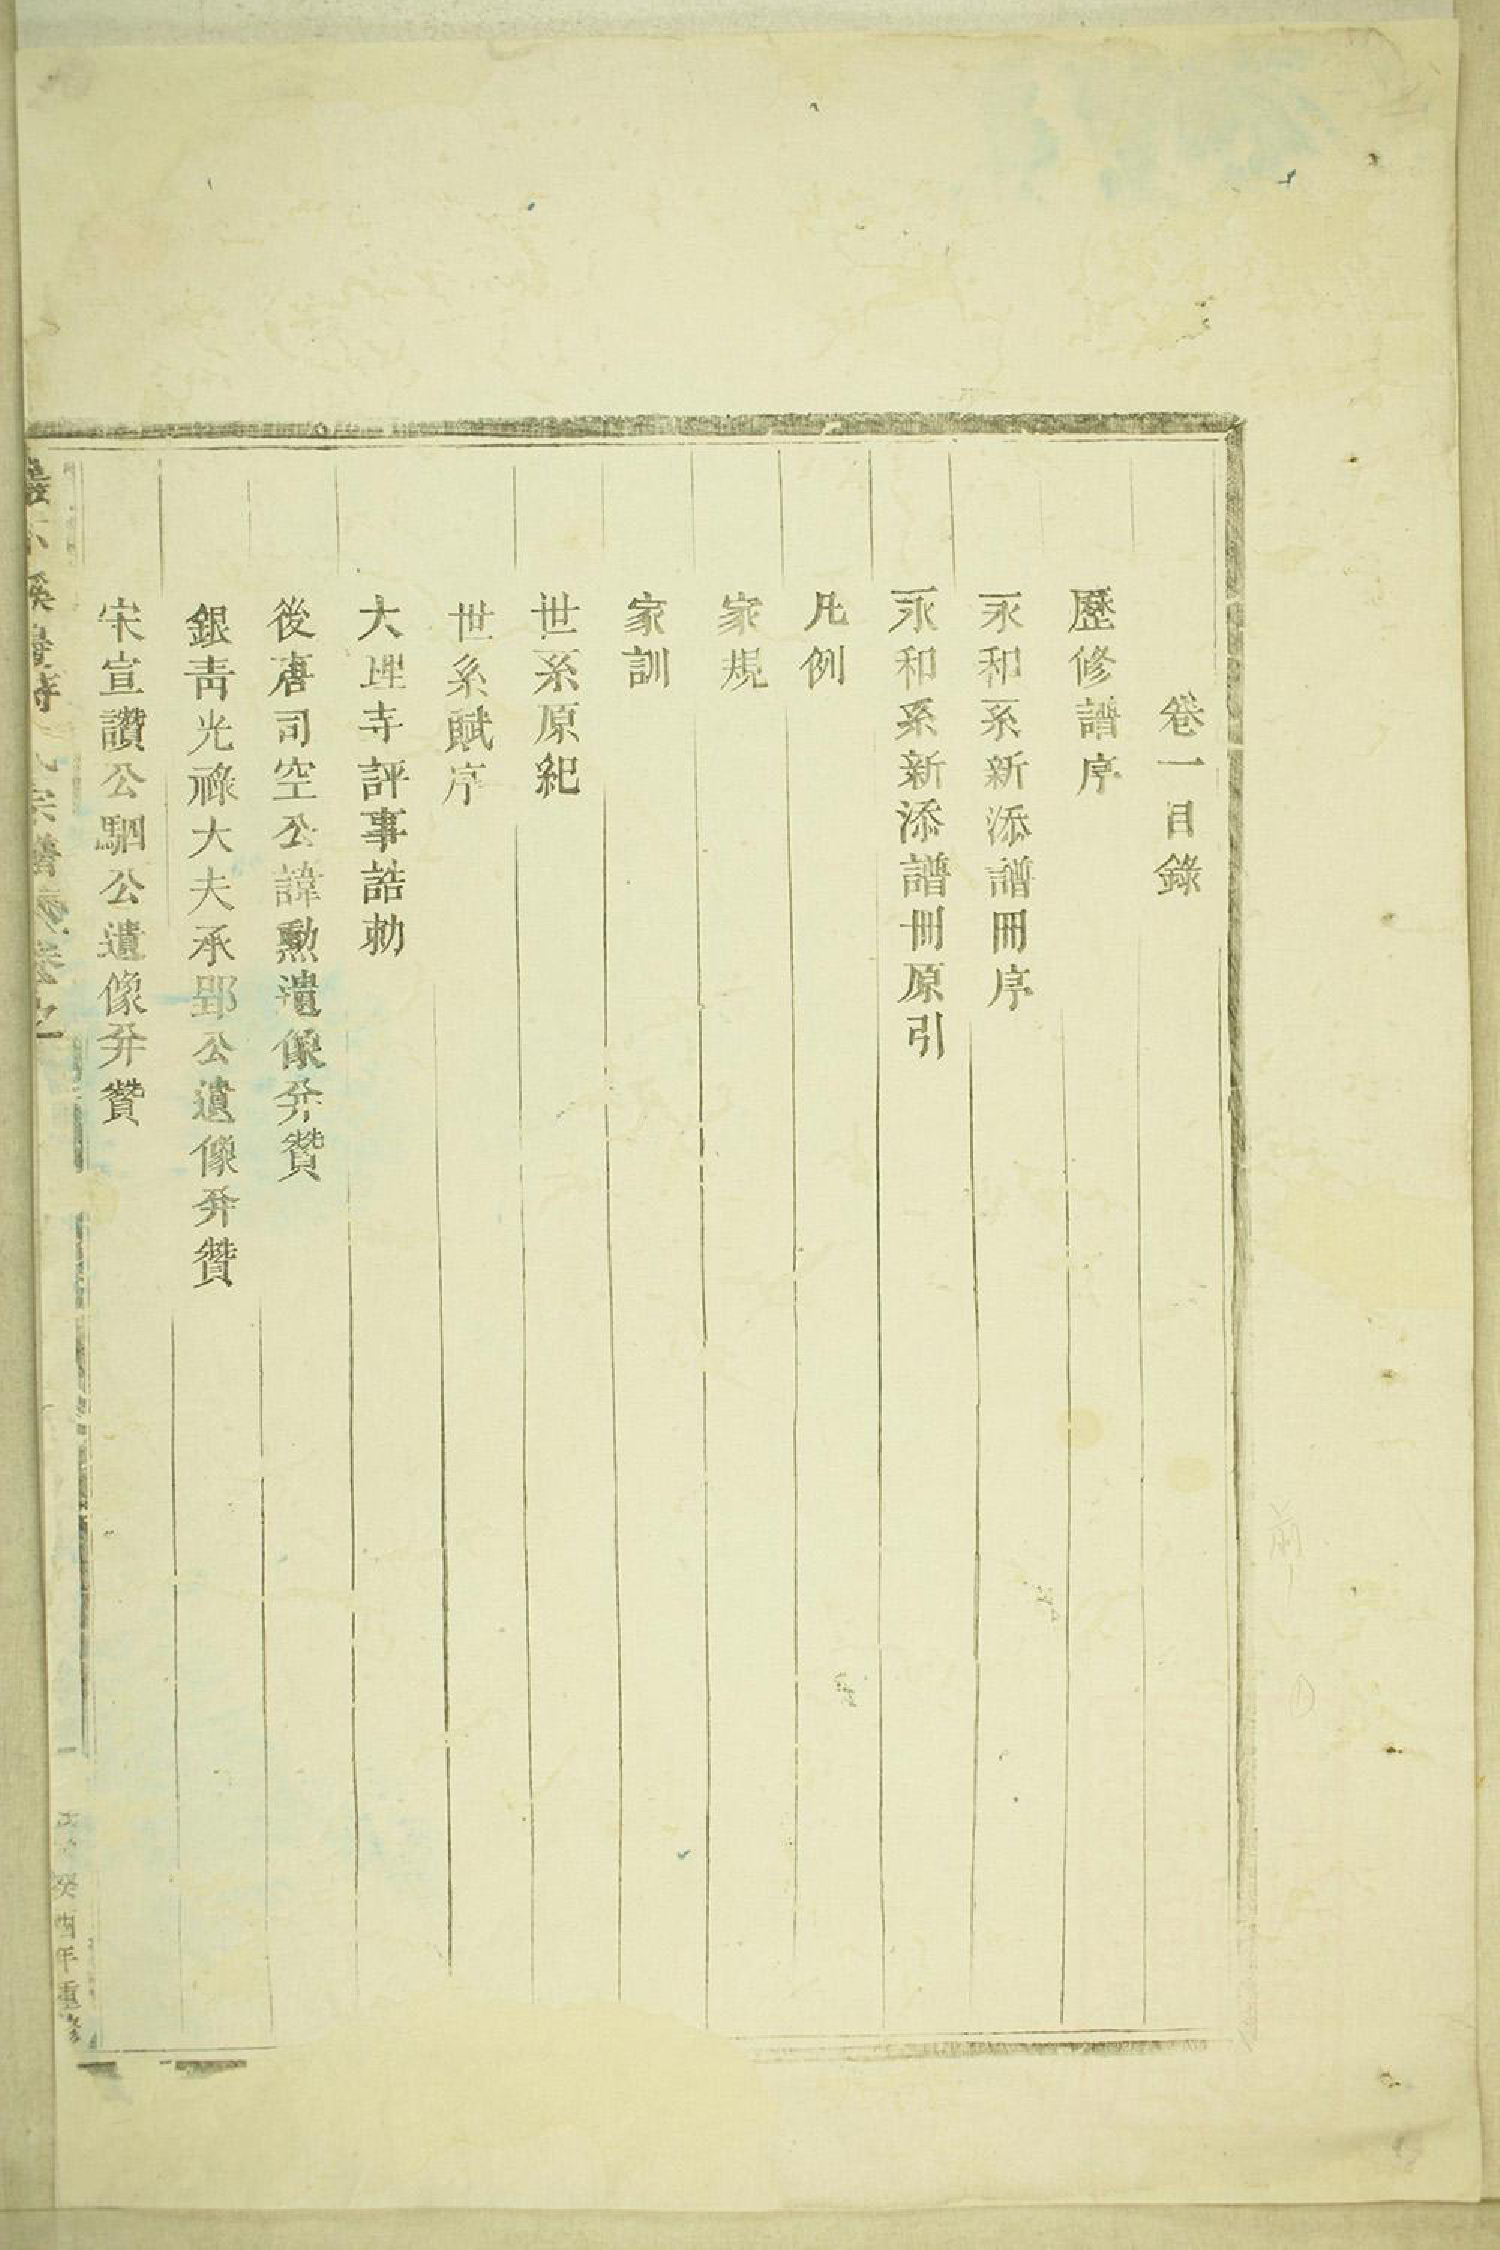 卷一目錄
歷修譜序
永和系新添譜冊序
永和系新添譜冊原引
凡例
家規
家訓
世系原紀
世系賦序
大理寺評事誥勅
後唐司空公諱勲遺像并贊
銀靑光祿大夫承郢公遺像并贊
宋宣讚公駟公遺像并贊
宗譜
癸酉年重修
前